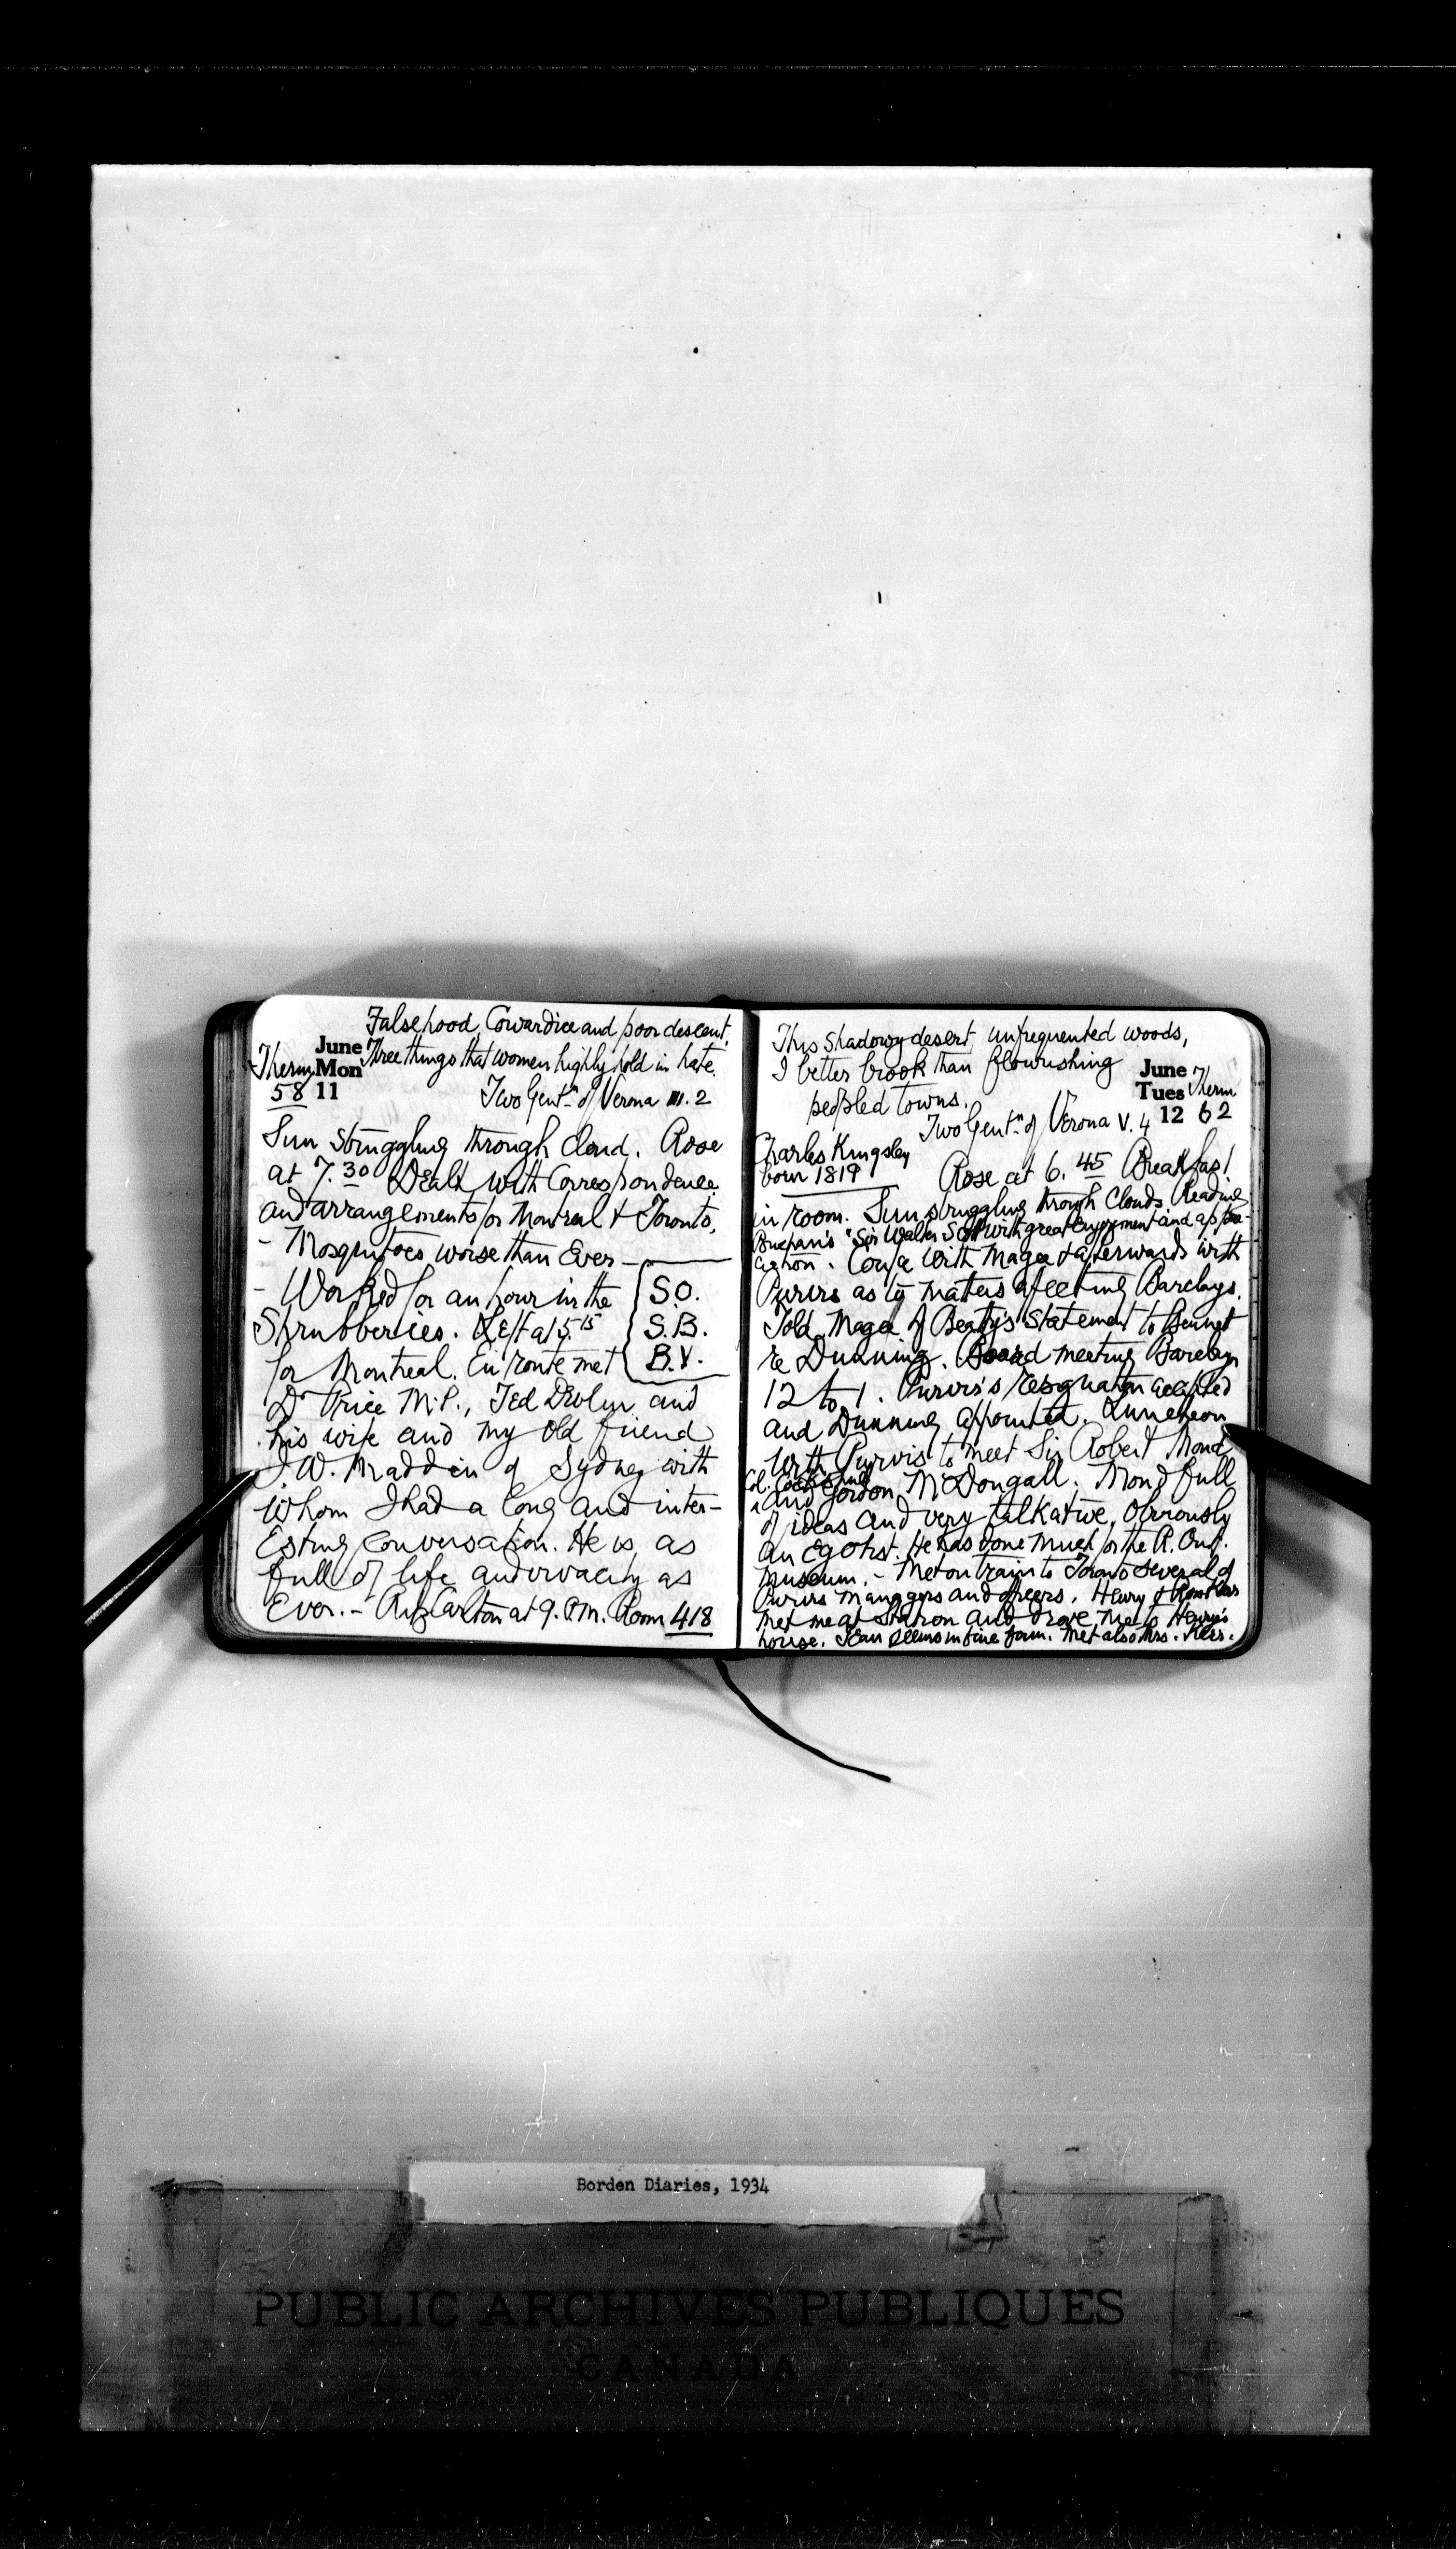 Falsehood, Cowardice and poor descent,
Three things that women highly hold in hate.
Two Gent.n of Verona III. 2
June
Mon
11
Therm
58
Sun struggling through cloud. Rose
at 7.30 Dealt with Correspondence
and arrangements for Montreal & Toronto,
- Mosquitoes worse than Ever -
- Worked for an hour in the
Shrubberies. Left at 5.15
for Montreal. En route met
S.O.
S.B.
B.V.
Dr Price M.P., Ted Devlin and
his wife and my old friend
J.W. Madden of Sydney with
Whom I had a long and inter-
Esting Conversation. He is as
full of life and vivacity as
Ever. - Ritz Carlton at 9. P.M. Room 418
This shadowy desert, unfrequented woods,
I better brook than flourishing
peopled towns.
Two Gent.n of Verona V. 4
June
Tues
12
Therm
62
Charles Kingsley
born 1819
Rose at 6.45 Breakfast
in room. Sun struggling through Clouds. Reading
Buchan's "Sir Walter Scott with great enjoyment and appre-
ciation. Conf'ce with Magee & afterwards with
Purvis as to matters affecting Barclays.
Told Magee of Beatty's Statement to Bennet
re Dunning. Board meeting Barclays
12 to 1. Purvis's resignation accepted
and Dunning appointed. Luncheon
With Purvis to meet Sir Robert Mond
Col.
and Gordon McDougall. Mond full
of ideas and very talkative, Obviously
an Egotist. He has done much for the R. Ont.
Museum. - Met on train to Toronto several of
Purvis managers and officers. Henry &
met me at Station and drove me to Henry's
house. Jean seems in fine form. Met also Mrs. Kerr.
Borden Diaries, 1934
PUBLIC ARCHIVES PUBLIQUES
CANADA